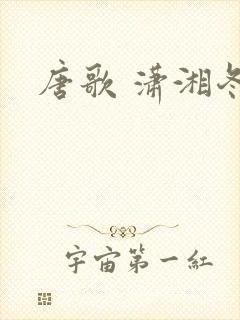 唐歌 潇湘冬
宇宙第一紅